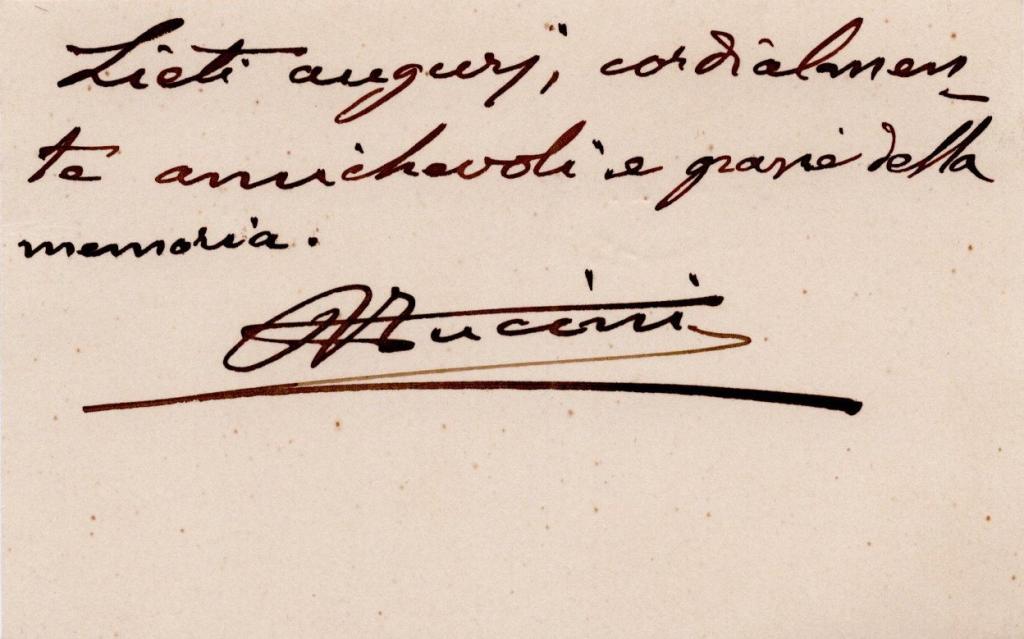 Lieti augurj, cordialmen
te amichevoli e grazie della
memoria.